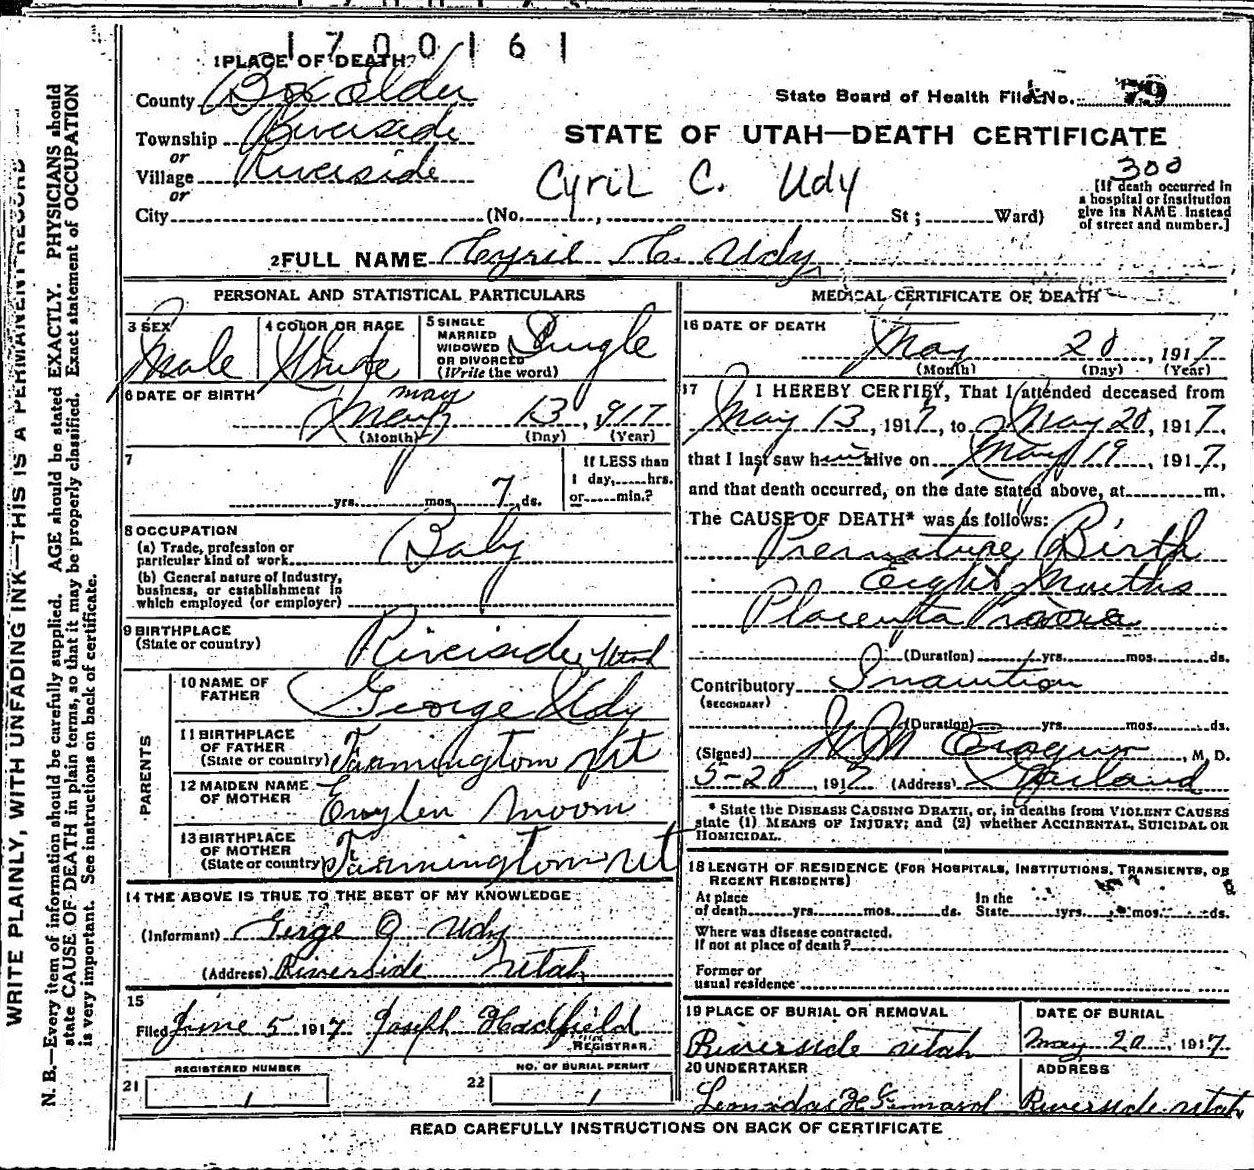 1700161
1 PLACE OF DEATH
County Box Elder
State Board of Health File No. 79
Township Riverside
STATE OF UTAH—DEATH CERTIFICATE
or
Village Riverside
Cyril C. Udy
300
or
[If death occurred in
a hospital or institution
give its NAME instead
of street and number.]
City (No. , St ; Ward)
2 FULL NAME Cyril C. Udy
PERSONAL AND STATISTICAL PARTICULARS
3 SEX Male
4 COLOR OR RACE White
5 SINGLE
MARRIED
WIDOWED
OR DIVORCED
(Write the word) Single
6 DATE OF BIRTH
may
May 13, 917
(Month) (Day) (Year)
7
yrs. mos. 7 ds.
If LESS than
1 day, hrs.
or min.?
8 OCCUPATION
(a) Trade, profession or
particular kind of work Baby
(b) General nature of industry,
business, or establishment in
which employed (or employer)
9 BIRTHPLACE
(State or country) Riverside, Utah
PARENTS
10 NAME OF
FATHER George Udy
11 BIRTHPLACE
OF FATHER
(State or country) Farmington Ut
12 MAIDEN NAME
OF MOTHER Moom
13 BIRTHPLACE
OF MOTHER
(State or country) Farmington Ut
14 THE ABOVE IS TRUE TO THE BEST OF MY KNOWLEDGE
(Informant) Gerge O Udy
(Address) Riverside Utah
15
Filed June 5 1917 Joseph Hadfield
REGISTRAR.
21 REGISTERED NUMBER
1
22 NO. OF BURIAL PERMIT
1
MEDICAL CERTIFICATE OF DEATH
16 DATE OF DEATH
May 20, 1917
(Month) (Day) (Year)
17 I HEREBY CERTIFY, That I attended deceased from
May 13, 1917, to May 20, 1917.
that I last saw him alive on May 19, 1917,
and that death occurred, on the date stated above, at m.
The CAUSE OF DEATH* was as follows:
Premature Birth
Eight Months
Placenta Praevia
(Duration) yrs. mos. ds.
Contributory Inanition
(SECONDARY)
(Duration) yrs. mos. ds.
(Signed) , M. D.
5-20, 1917 (Address) Garland
* State the DISEASE CAUSING DEATH, or, in deaths from VIOLENT CAUSES
state (1) MEANS OF INJURY; and (2) whether ACCIDENTAL, SUICIDAL OR
HOMICIDAL.
18 LENGTH OF RESIDENCE (FOR HOSPITALS, INSTITUTIONS, TRANSIENTS, OR
RECENT RESIDENTS)
At place In the
of death yrs. mos. ds. State yrs. mos. ds.
Where was disease contracted.
If not at place of death?
Former or
usual residence
19 PLACE OF BURIAL OR REMOVAL
Riverside Utah
DATE OF BURIAL
May 20, 1917.
20 UNDERTAKER
ADDRESS
Riverside Utah
READ CAREFULLY INSTRUCTIONS ON BACK OF CERTIFICATE
WRITE PLAINLY, WITH UNFADING INK—THIS IS A PERMANENT RECORD
N. B.—Every item of information should be carefully supplied. AGE should be stated EXACTLY. PHYSICIANS should
state CAUSE OF DEATH in plain terms, so that it may be properly classified. Exact statement of OCCUPATION
is very important. See instructions on back of certificate.